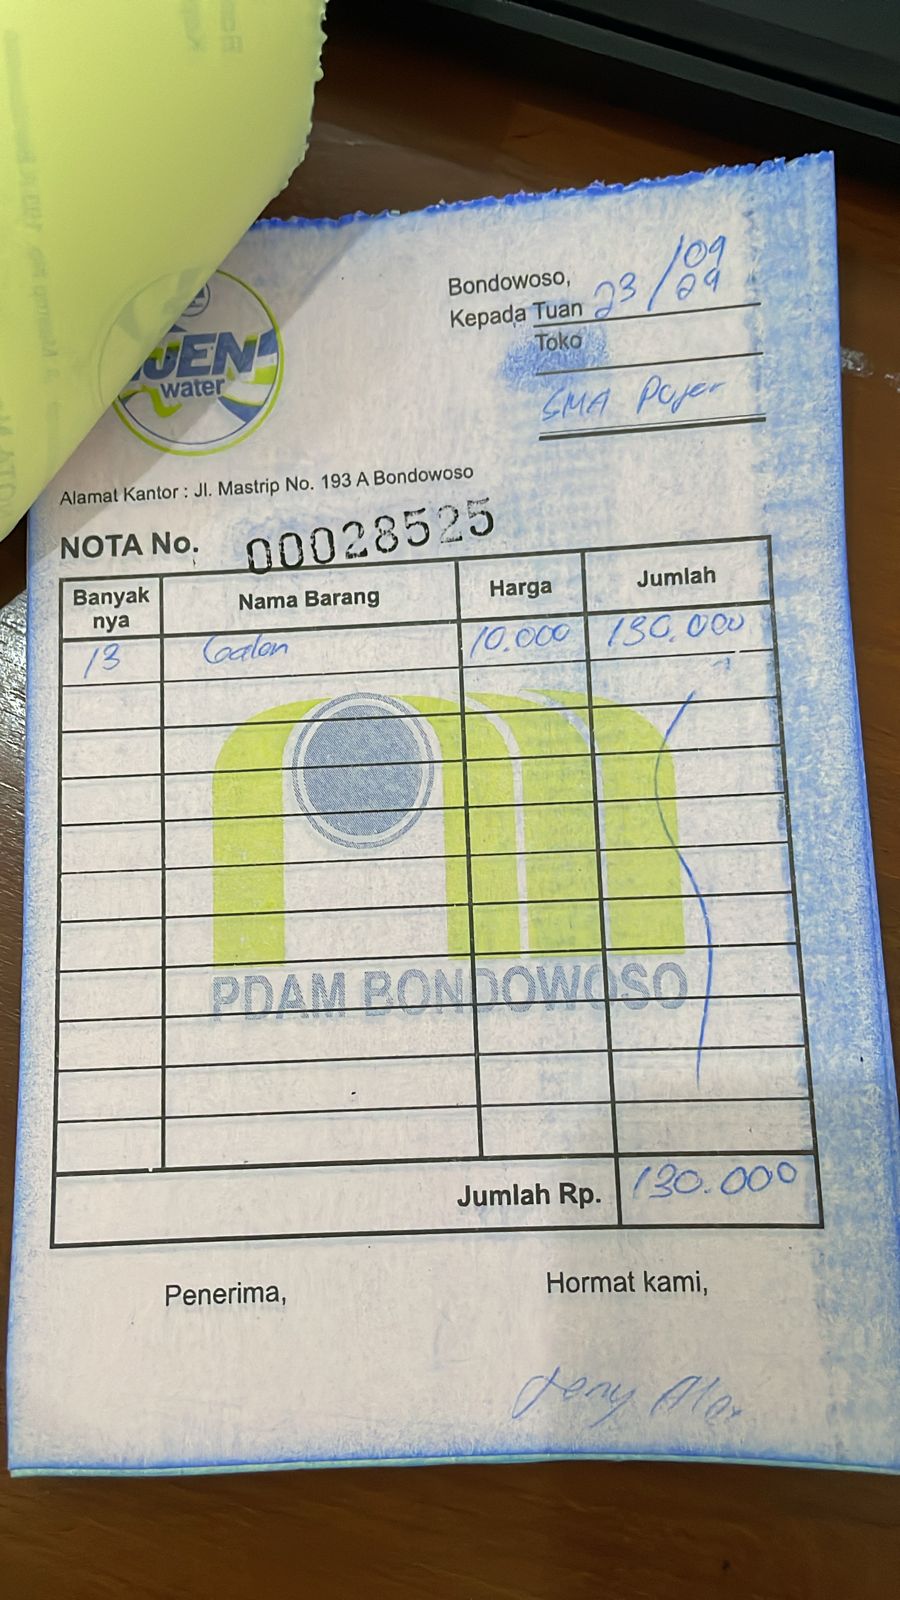 Bondowoso, 23/09
Kepada Tuan 24
Toko
SMA
water
Alamat Kantor : Jl. Mastrip No. 193 A Bondowoso
NOTA No. 00028525
Banyak nya Nama Barang Harga Jumlah
13 Galon 10.000 130.000
PDAM BONDOWOSO
Jumlah Rp. 130.000
Penerima, Hormat kami,